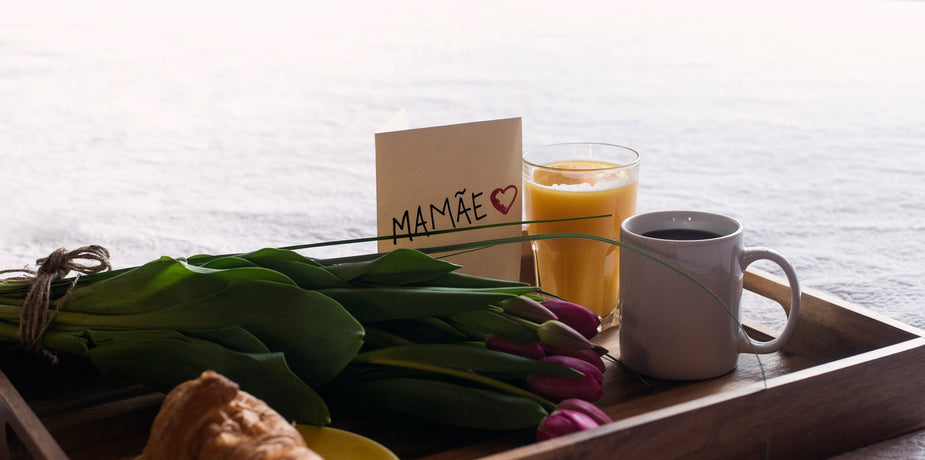 MAMÃE